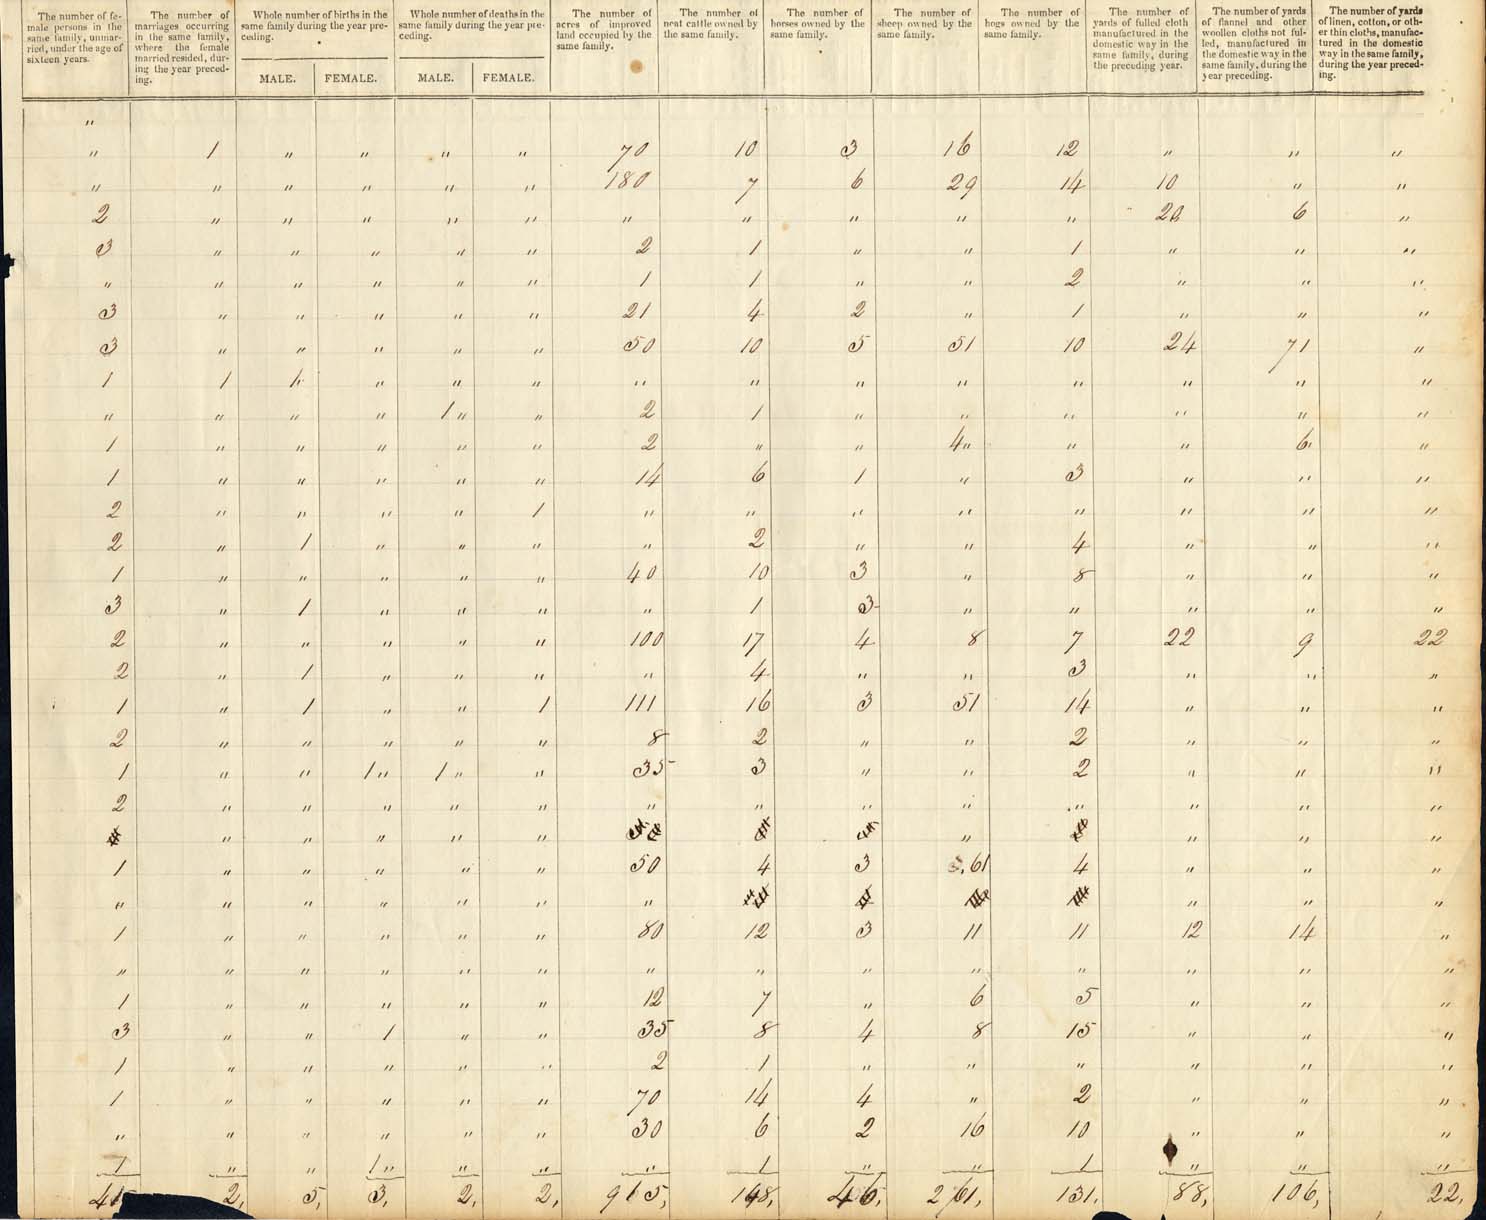 The number of female persons in the same family, unmarried, under the age of sixteen years.
The number of marriages occurring in the same family, where the female married resided, during the year preceding.
Whole number of births in the same family during the year preceding.
MALE. FEMALE.
Whole number of deaths in the same family during the year preceding.
MALE. FEMALE.
The number of acres of improved land occupied by the same family.
The number of neat cattle owned by the same family.
The number of horses owned by the same family.
The number of sheep owned by the same family.
The number of hogs owned by the same family.
The number of yards of fulled cloth manufactured in the domestic way in the same family, during the preceding year.
The number of yards of flannel and other woollen cloths not fulled, manufactured in the domestic way in the same family, during the year preceding.
The number of yards of linen, cotton, or other thin cloths, manufactured in the domestic way in the same family, during the year preceding.
"
" 1 " " " " 70 10 3 16 12 " " "
" " " " " " 180 7 6 29 14 10 " "
2 " " " " " " " " " " 20 6 "
3 " " " " " 2 1 " " 1 " " "
" " " " " " 1 1 " " 2 " " "
3 " " " " " 21 4 2 " 1 " " "
3 " " " " " 50 10 5 51 10 24 71 "
1 1 1 " " " " " " " " " " "
" " " " 1 " " 2 1 " " " " " "
1 " " " " " 2 " " 4 " " " 6 "
1 " " " " " 14 6 1 " 3 " " "
2 " " " " 1 " " " " " " " "
2 " 1 " " " " 2 " " 4 " " "
1 " " " " " 40 10 3 " 8 " " "
3 " 1 " " " " 1 3 " " " " "
2 " " " " " 100 17 4 8 7 22 9 22
2 " 1 " " " " 4 " " 3 " " "
1 " 1 " " 1 111 16 3 51 14 " " "
2 " " " " " 8 2 " " 2 " " "
1 " " 1 " 1 " " 35 3 " " 2 " " "
2 " " " " " " " " " " " " "
" " " " " " " " "
1 " " " " " 50 4 3 61 4 " " "
" " " " " " " " " "
1 " " " " " 80 12 3 11 11 12 14 "
" " " " " " " " " " " " " "
1 " " " " " 12 7 " 6 5 " " "
3 " " 1 " " 35 8 4 8 15 " " "
1 " " " " " 2 1 " " " " " "
1 " " " " " 70 14 4 " 2 " " "
" " " " " " 30 6 2 16 10 " " "
1 " " 1 " " " " 1 " " 1 " " "
2, 5, 3, 2, 2, 915, 148, 46, 261, 131, 88, 106, 22,